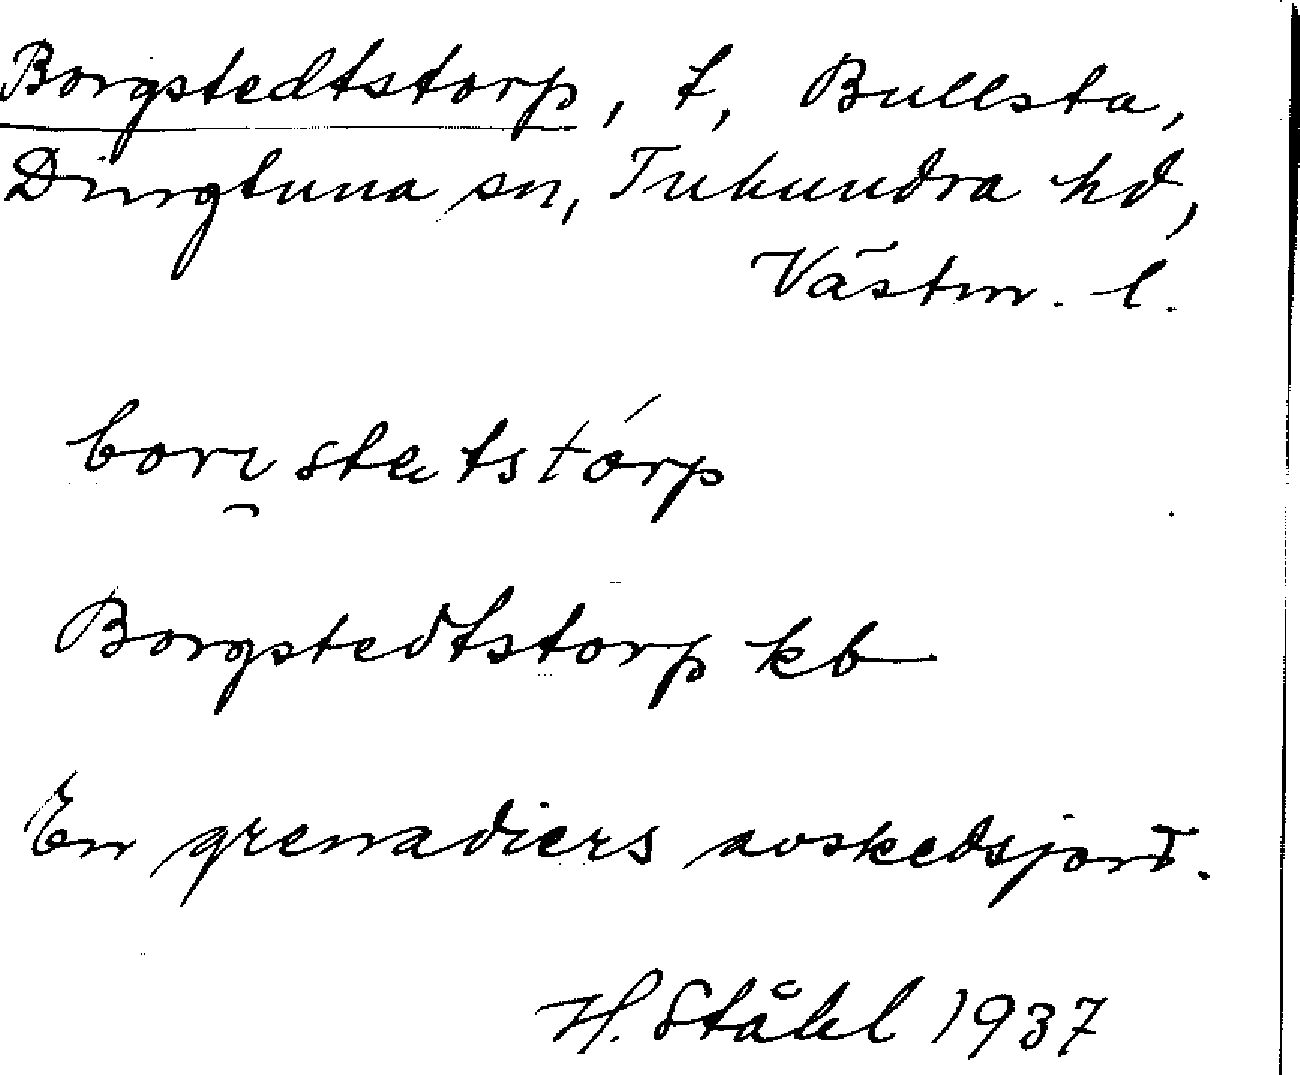 Borgstedtstorp, t, Bullsta,
Dingtuna sn, Tuhundra hd,
Västm. l.
bori̯stetstórp
Borgstedtstorp kb
En grenadiers avskedsjord.
H. Ståhl 1937